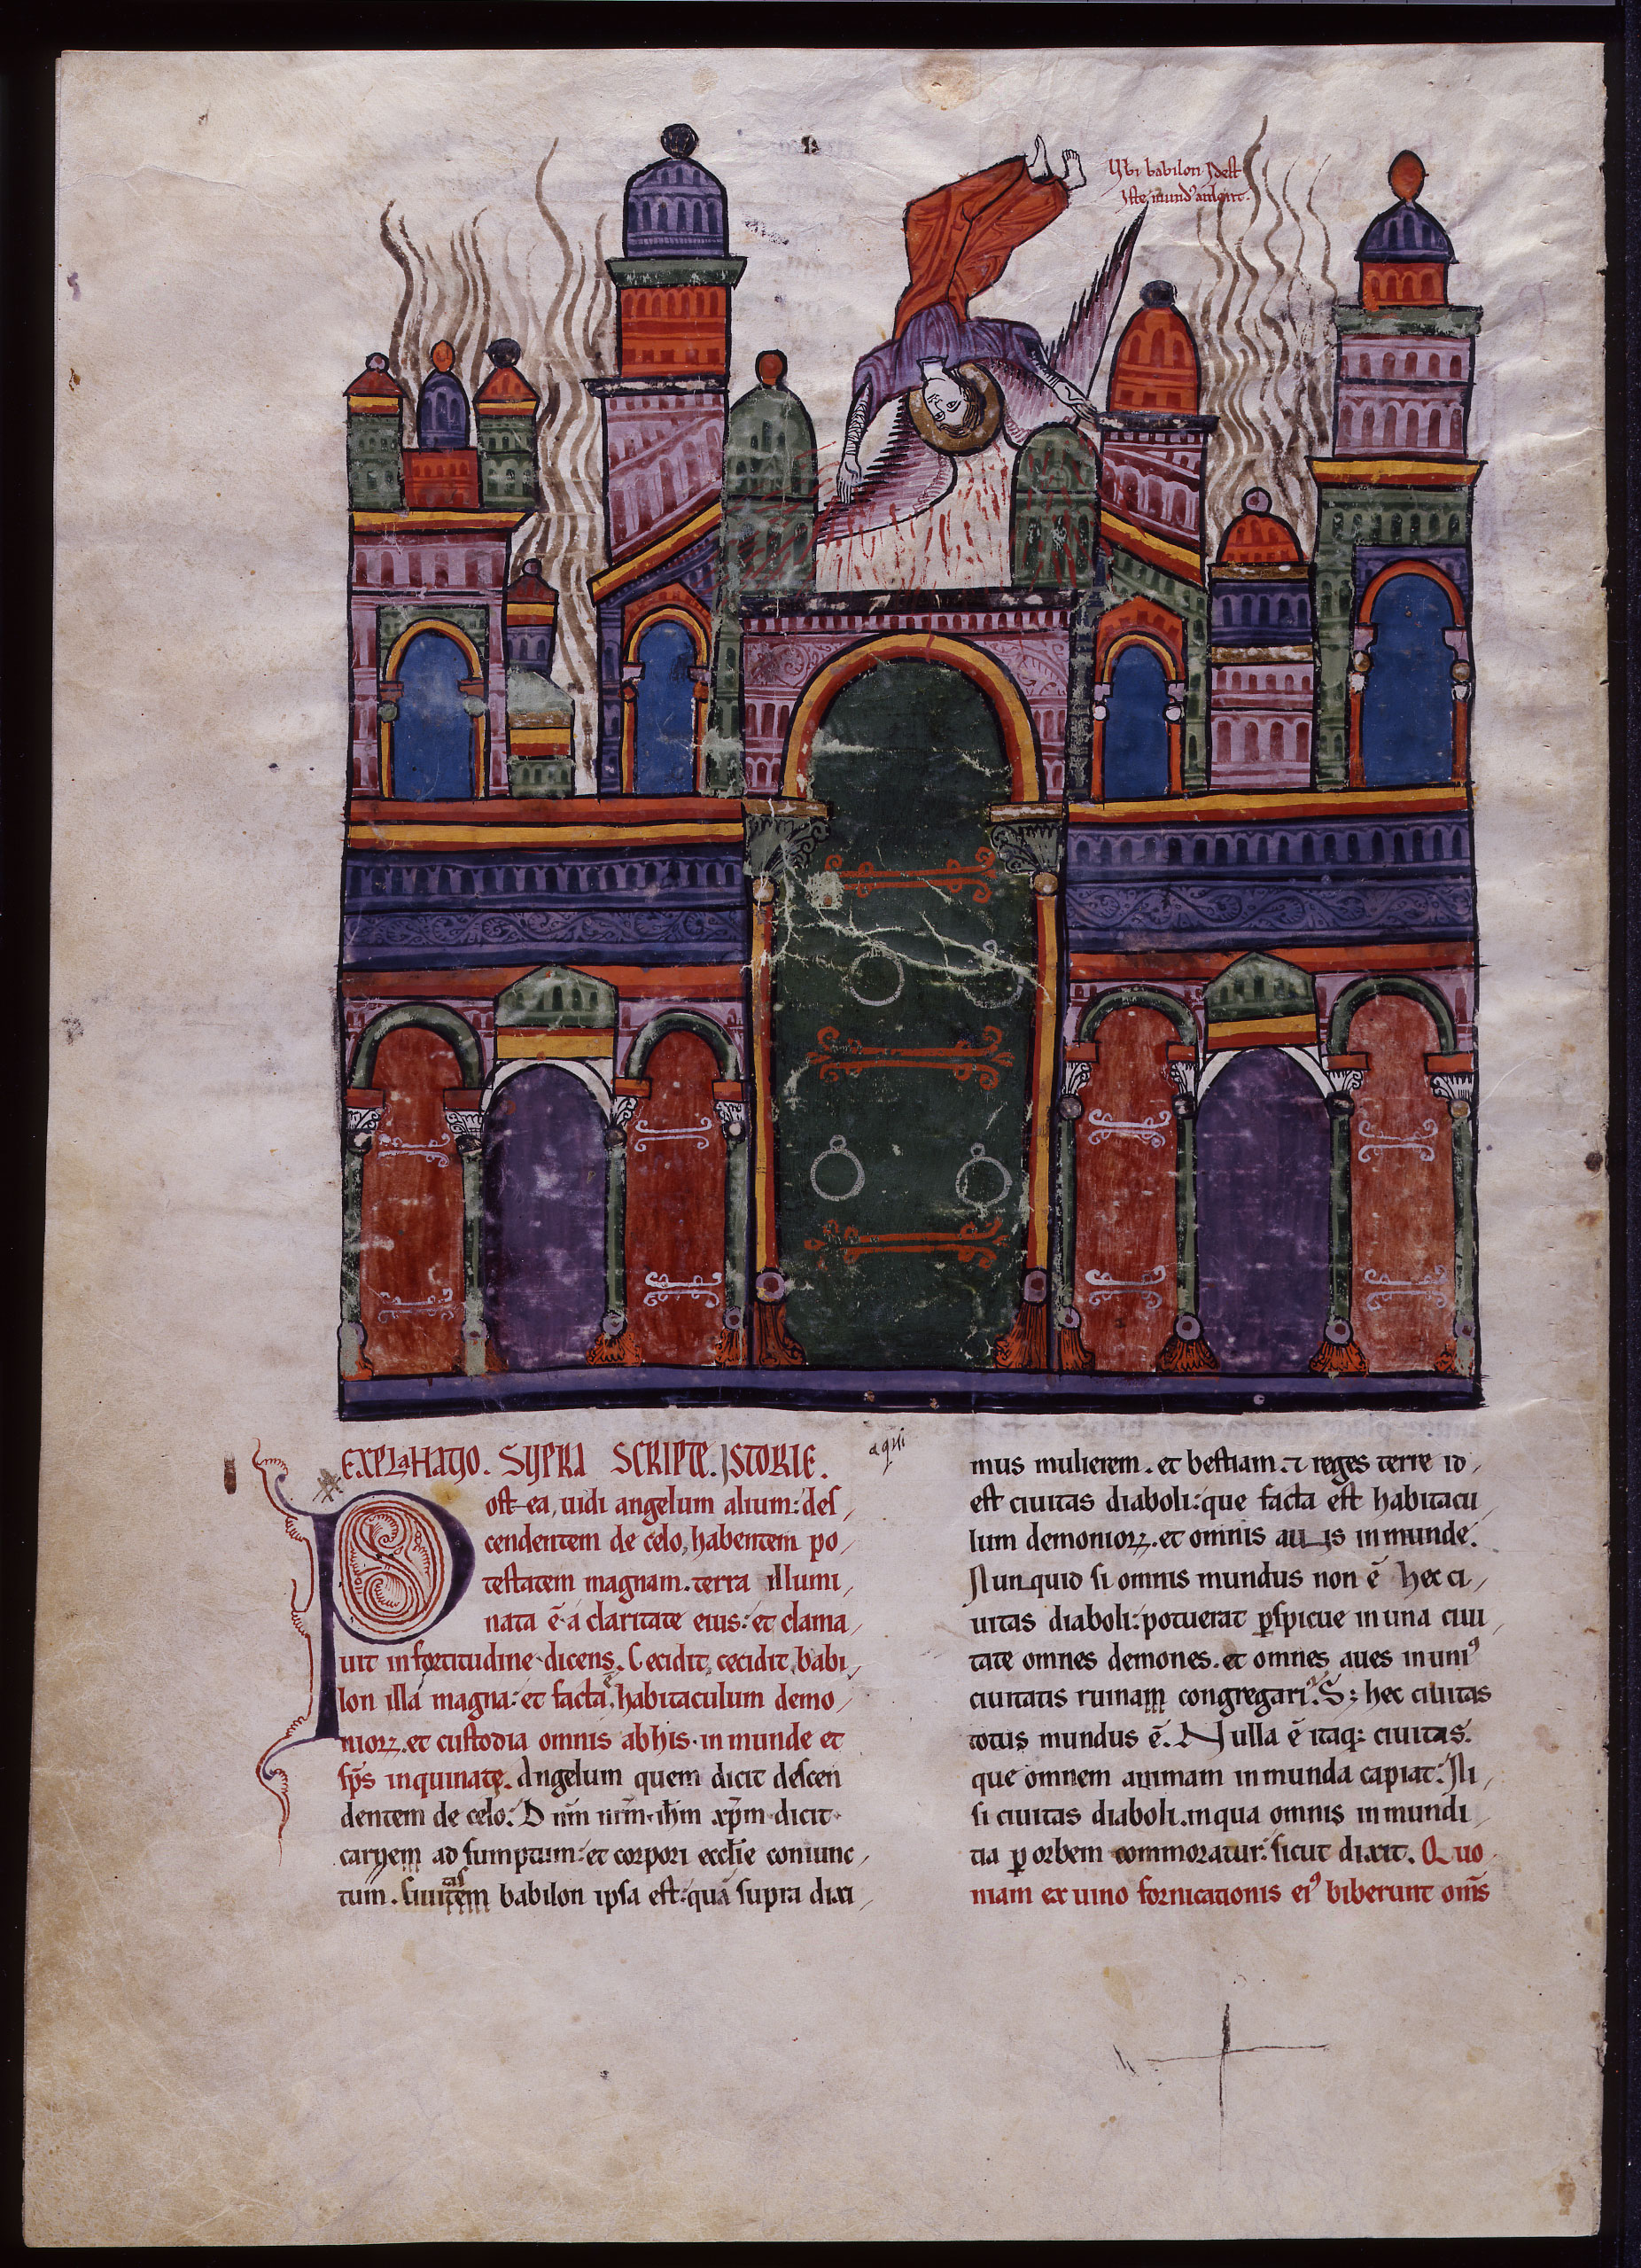 Ubi babilon idest
iste mundus ardent.
EXPLaNATIO. SUPRA SCRIPTE. ISTORIE.
aqui
Post ea, uidi angelum alium: des/
cendentem de celo, habentem po/
testatem magnam. terra illumi/
nata ē a claritate eius: et clama/
uit in fortitudine dicens. Cecidit, cecidit, babi/
lon illa magna: et facta ē habitaculum demo/
nioꝝ. et custodia omnis abhis. inmunde et
sp̄s inquinatę. Angelum quem dicit descen
dentem de celo: Dn̄m nr̄m ih̄m xp̄m dicit
carnem adsumptam: et corpori ecclīe coniunc/
tum. babilon ipsa est: quā supra dixi/
mus mulierem. et bestiam. ⁊ reges terre id/
est ciuitas diaboli: que facta est habitacu/
lum demonioꝝ. et omnis auis inmunde.
Nunquid si omnis mundus non ē hec ci/
uitas diaboli: potuerat ꝑspicue in una ciui/
tate omnes demones. et omnes aues in uniꝰ
ciuitatis ruinam congregari. S; hec ciuitas
totus mundus ē. Nulla ē itaq; ciuitas.
que omnem animam inmunda capiat: Ni/
si ciuitas diaboli. inqua omnis inmundi/
tia ꝑ orbem commoratur: sicut dixit. Quo/
niam ex uino fornicationis eiꝰ biberunt om̄s